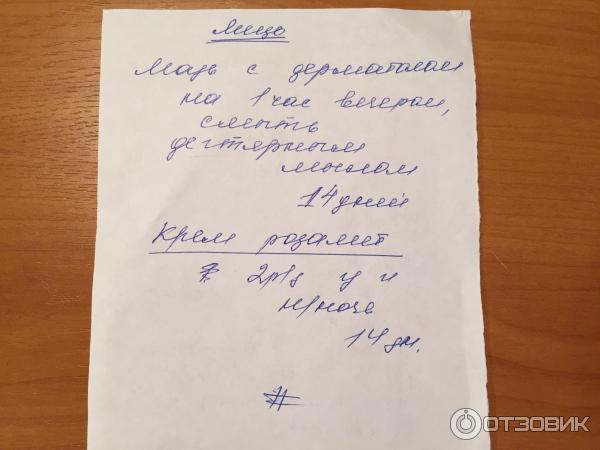 лицо
Мазь с дерматолом
на 1 час вечером,
смыть
дегтярным
мылом
14 дней
Крем розамет
2р/д у и
н/ночь
14 дн.
#
ОТЗОВИК